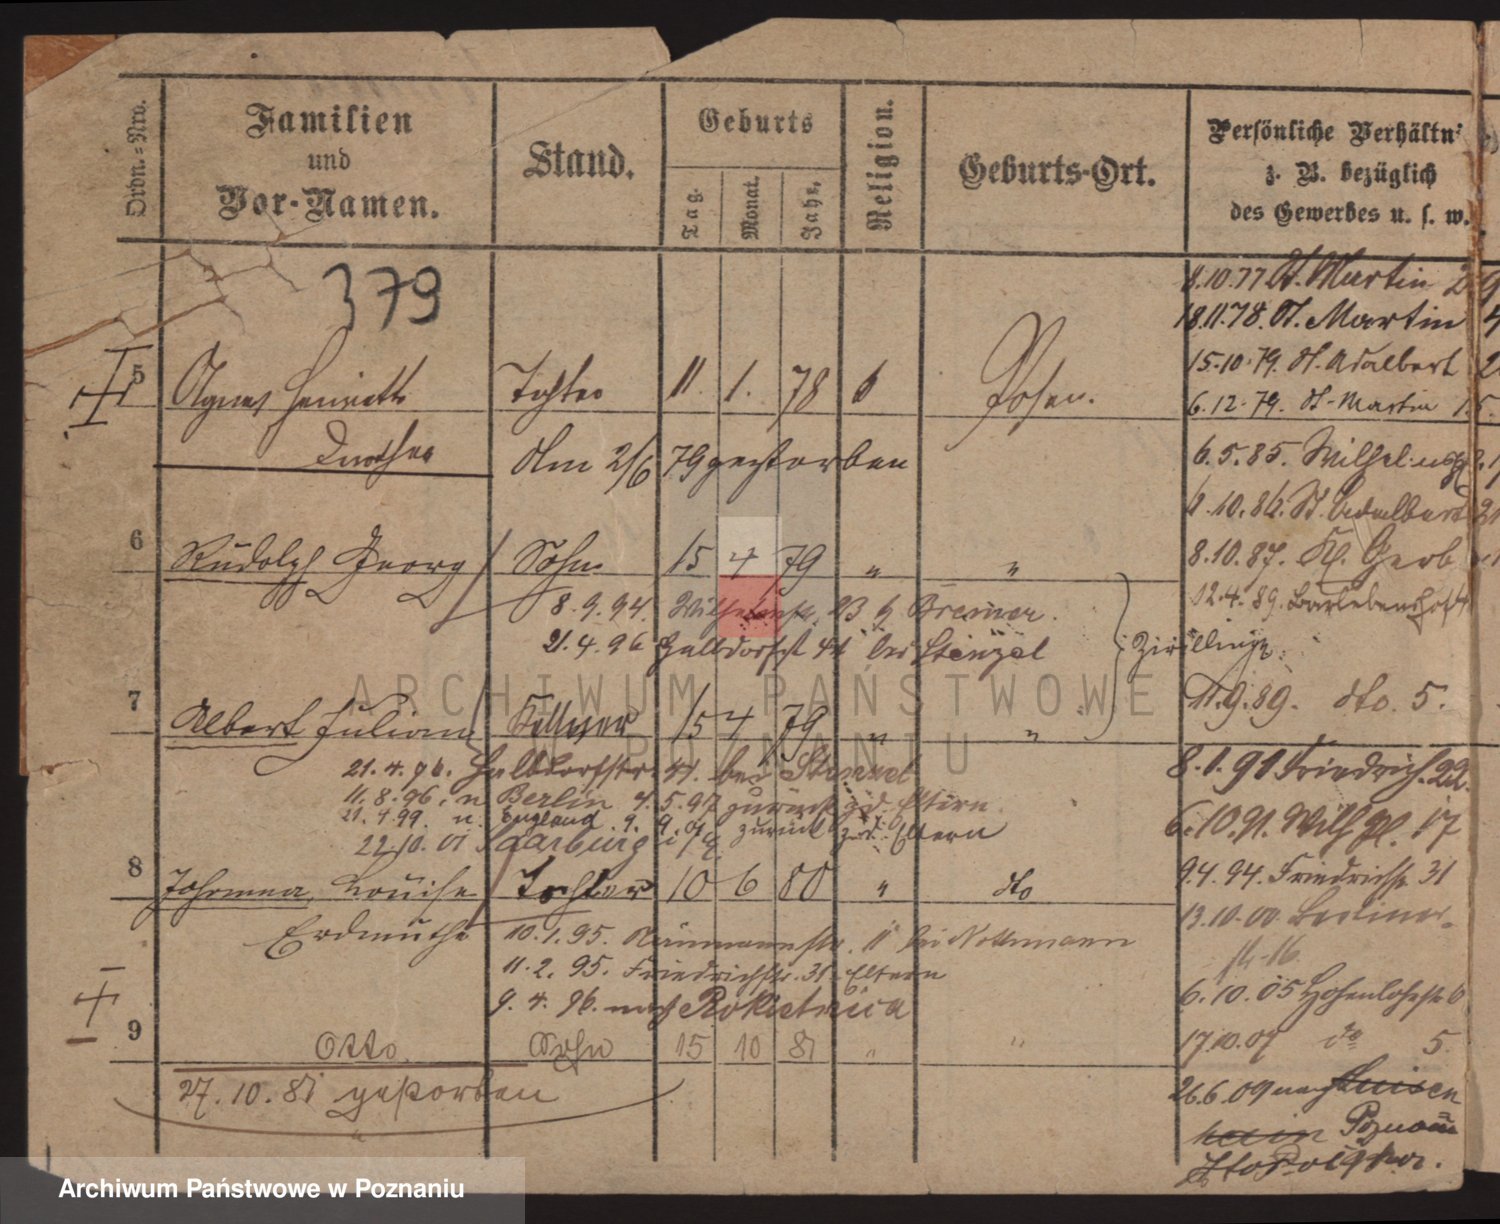 Ordn.-Nro.
Familien
und
Vor-Namen.
Stand.
Geburts
Tag.
Monat.
Jahr.
Religion.
Geburts-Ort.
Persönliche Verhältn
z. B. bezüglich
des Gewerbes u. s. w.
379
8.10.77 St. Martin 29
18.11.78. St. Martin 4
15.10.79. St. Adalbert 2
6.12.79. St. Martin
5 Agnes Henriette Tochter 11. 1. 78 Posen.
Dorothea Am 2/6 79 gestorben
6.5.85. Wilhelmspl
6.10.86. St. Adalbert 21
6 Rudolph Georg Sohn 15 4 79 " "
8.10.87. Kl. Gerb
8.9.94. Wilhelmstr. 23 b Bremer.
12.4.89. Barlebenshof 4
21.4.96 Halbdorfst 41 bei Stenzel
Zwillinge.
11.9.89. dto. 5.
7 Albert Julian Kellner 15 4 79 " "
21.4.96. Halbdorfstr 41. bei Stenzel
8.1.91 Friedrich. 22.
11.8.96. n Berlin 4.5.97 zurück z. d. Eltern
21.4.99. n. England 9. 9. 01 zurück z. d. Eltern
6.10.91. Wilh Pl. 17
22.10.01 Saarburg
8 Johanna Louise Tochter 10 6 80 " dto
9.4.94. Friedrichstr 31
Erdmuthe 10.1.95. Naumannstr. 11 bei Nothmann
13.10.00. Berliner-
str. 16.
11.2.95. Friedrichstr. 31 Eltern
9.4.96. nach Rokietnica
6.10.05 Hohenlohestr 6
9 Otto Sohn 15 10 81 " "
17.10.07 do 5.
27.10.81 gestorben
26.6.09 nach Luisen
hain
ARCHIWUM PAŃSTWOWE
W POZNANIU
Archiwum Państwowe w Poznaniu